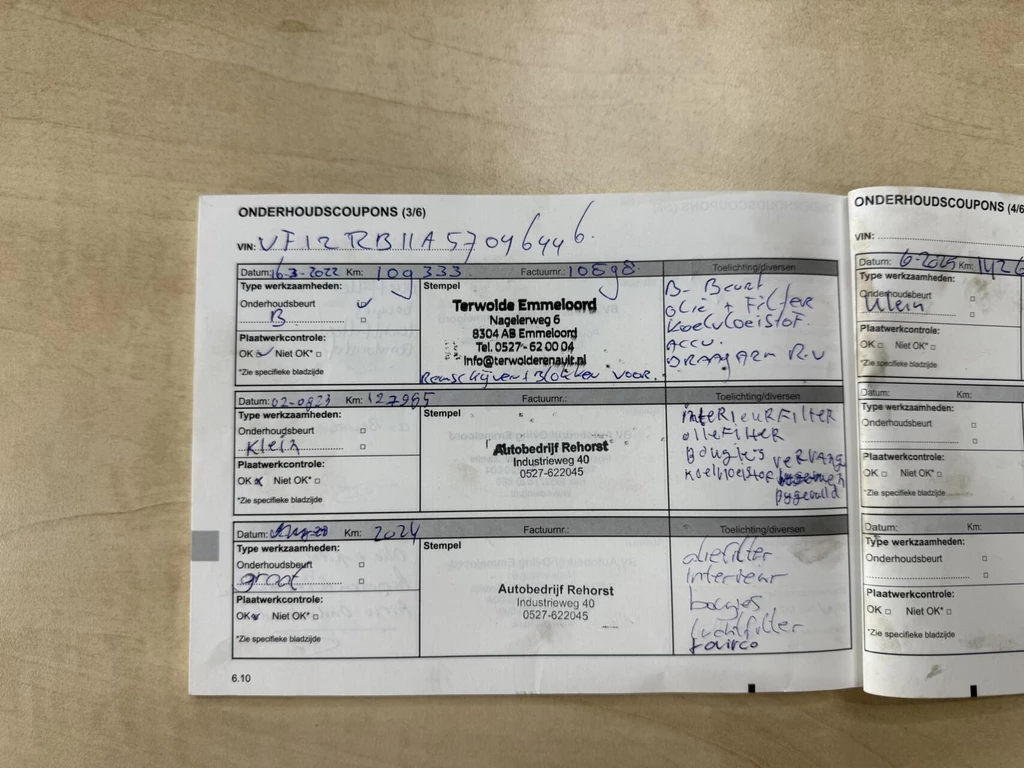 ONDERHOUDSCOUPONS (3/6)
VIN: VF12RB11A57046446.
Datum: 16-3-2022 Km: 109333 Factuurnr.: 10898 Toelichting/diversen
Type werkzaamheden:
Onderhoudsbeurt
B
Plaatwerkcontrole:
OK Niet OK*
*Zie specifieke bladzijde
Stempel
Terwolde Emmeloord
Nagelerweg 6
8304 AB Emmeloord
Tel. 0527 - 62 00 04
Info@terwolderenault.nl
Remschijven + Blokken voor.
B- Beurt
olie + Filter
Koelvloeistof.
Accu.
DRAAGARM R.V
Datum: 02-0823 Km: 127965 Factuurnr.: Toelichting/diversen
Type werkzaamheden:
Onderhoudsbeurt
Klein
Plaatwerkcontrole:
OK Niet OK*
*Zie specifieke bladzijde
Stempel
Autobedrijf Rehorst
Industrieweg 40
0527-622045
interieurFilter
olieFilter
Bougie's
VERVANGEN
koelvloeistof
bygevuld
Datum: Km: 2024 Factuurnr.: Toelichting/diversen
Type werkzaamheden:
Onderhoudsbeurt
groot
Plaatwerkcontrole:
OK Niet OK*
*Zie specifieke bladzijde
Stempel
Autobedrijf Rehorst
Industrieweg 40
0527-622045
oliefilter
interieur
bougies
luchtfilter
fairco
6.10
ONDERHOUDSCOUPONS (4/6
VIN:
Datum: 6-2025 Km: 1426
Type werkzaamheden:
Onderhoudsbeurt
Klein
Plaatwerkcontrole:
OK Niet OK*
*Zie specifieke bladzijde
Datum: Km:
Type werkzaamheden:
Onderhoudsbeurt
Plaatwerkcontrole:
OK Niet OK*
*Zie specifieke bladzijde
Datum: Km:
Type werkzaamheden:
Onderhoudsbeurt
Plaatwerkcontrole:
OK Niet OK*
*Zie specifieke bladzijde